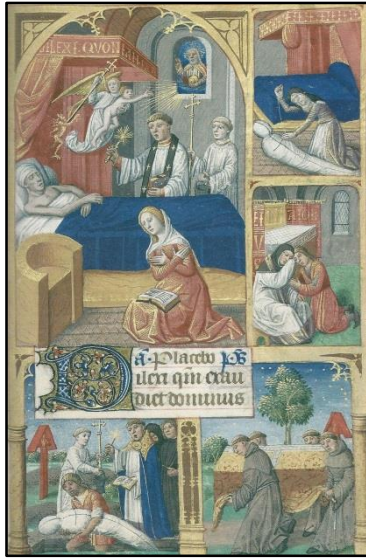 QVON
a̅. Placebo p̅s̅
Dilexi qm̅ exau
diet dominus